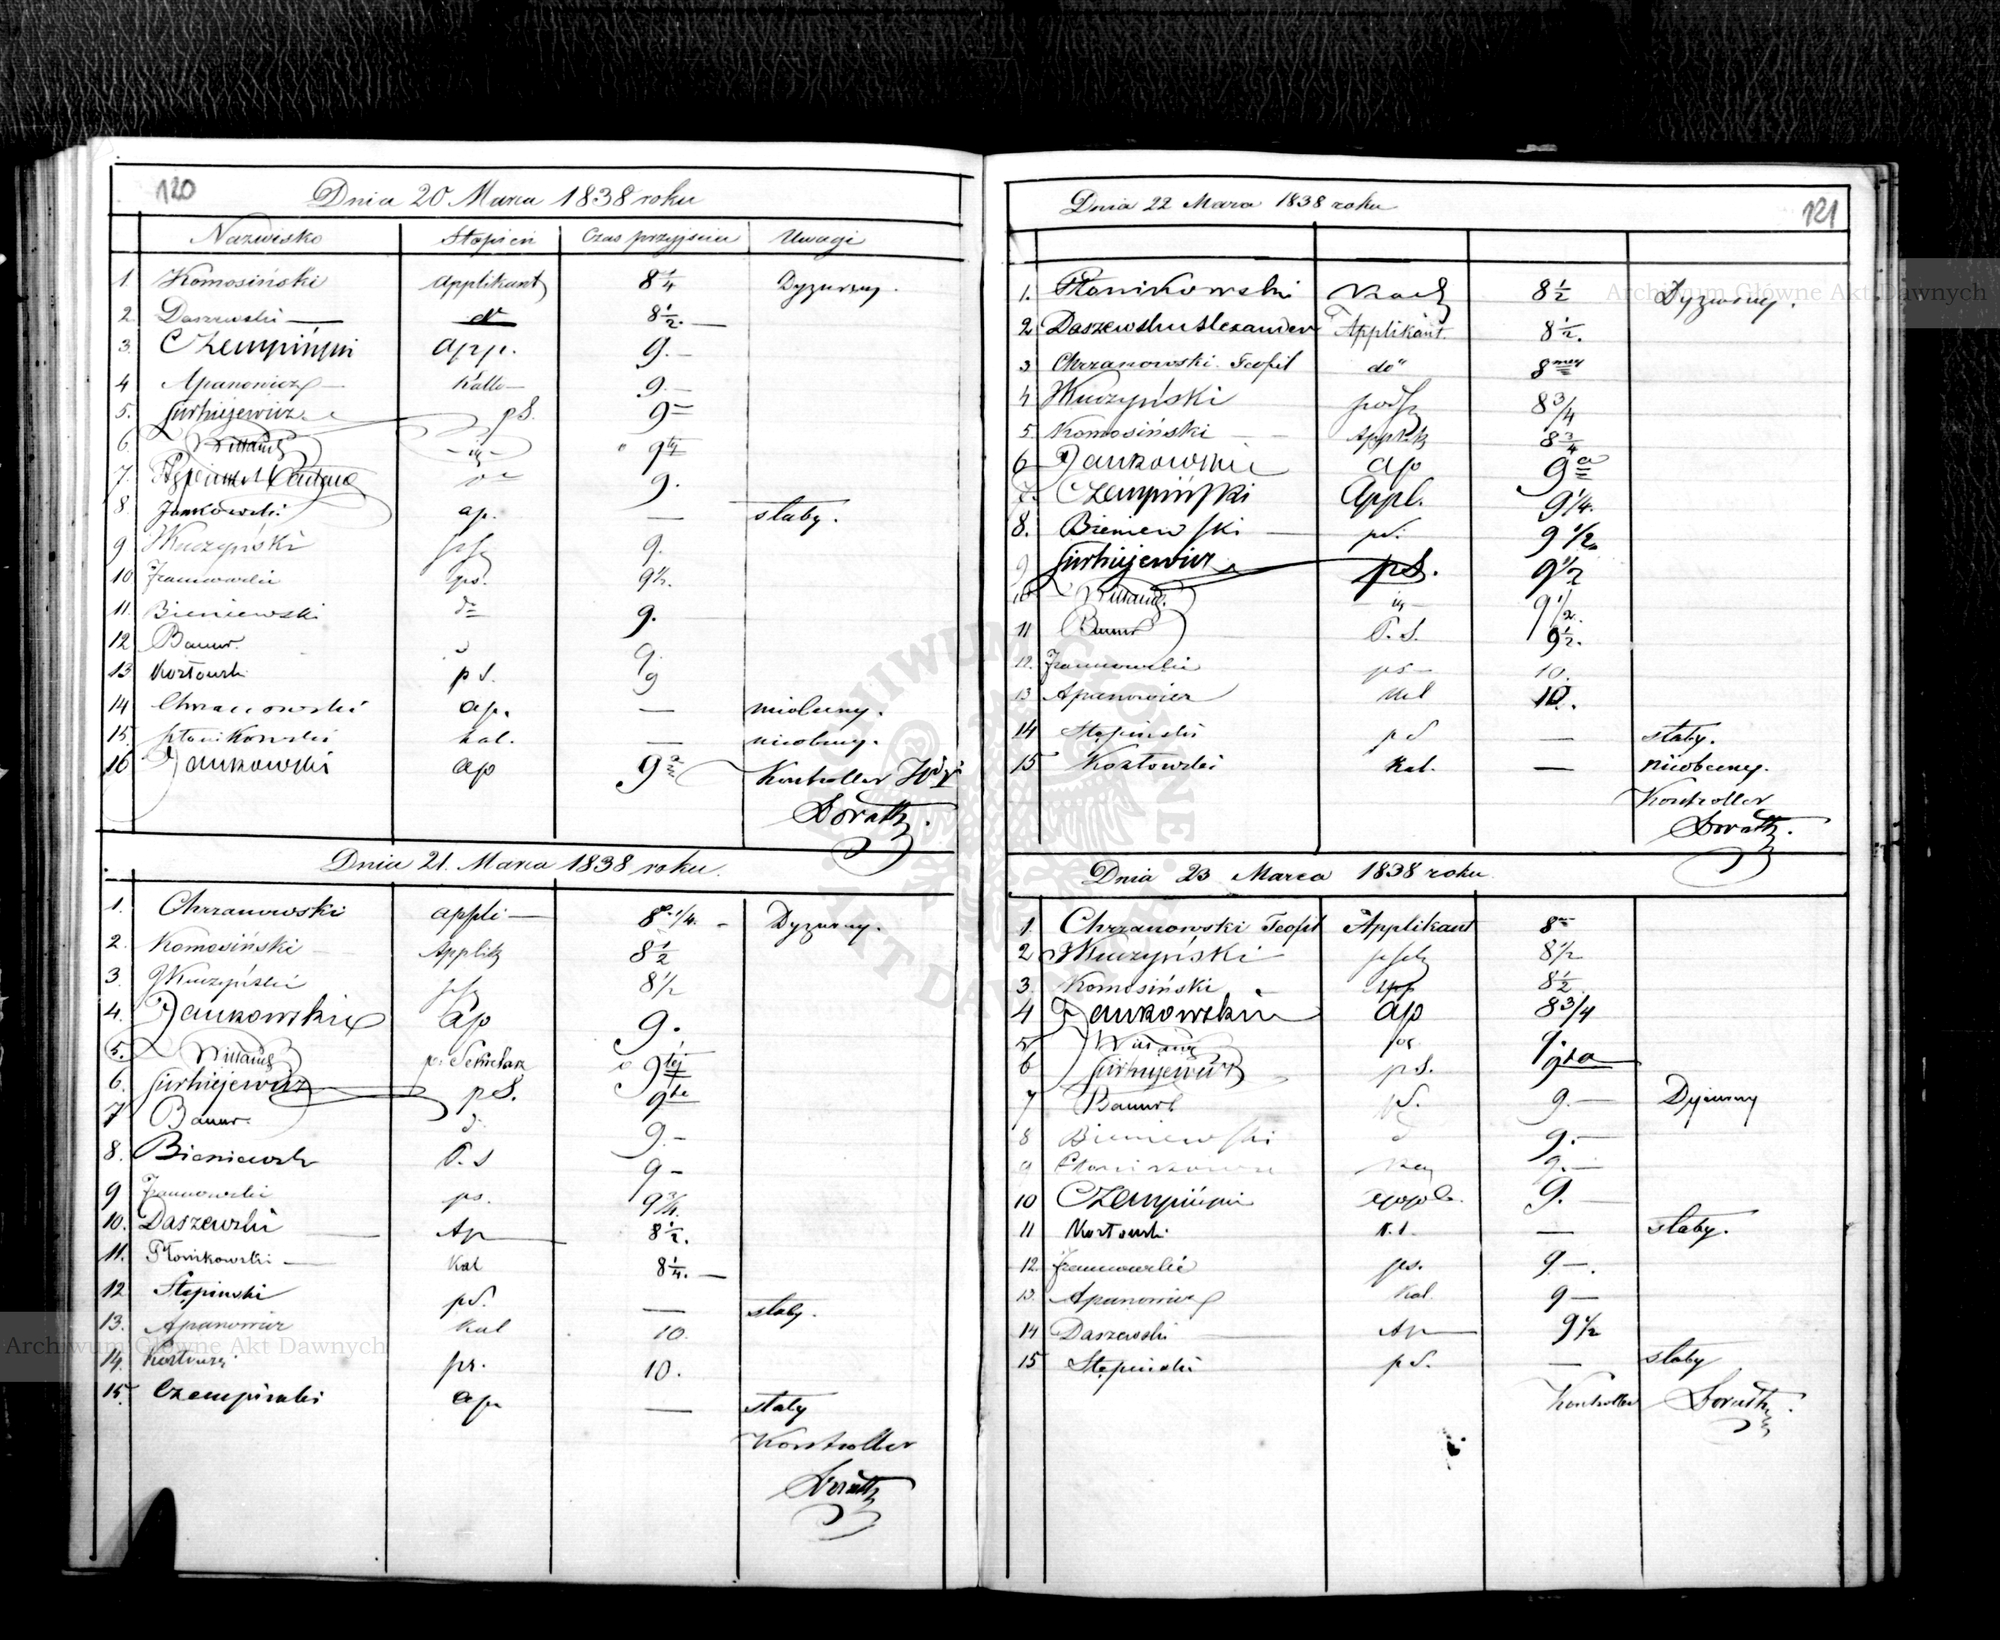 120
Dnia 20 Marca 1838 roku
Nazwisko Stopień Czas przyjścia Uwagi
1. Komosiński Applikant 8 1/4 Dyżurny.
2. Daszewski — dº 8 1/2. —
3. Czempiński app. 9. —
4 Apanowicz — Kall — 9. —
5. Jurkiejewicz pS. 9 —
6. Willand 9
7. 9.
8. Jankowski ap. — słaby.
9 Wuczyński 9.
10 ps. 9 1/2.
11. Bieniewski dº 9.
12 Bauer. 9.
13 Kozłowski pS. 9
14 Chrzanowski ap. — nieobecny.
15. Płonikowski kal. — nieobecny.
16 Jankowski ap 9
Kontroller
Doratt
Dnia 21. Marca 1838 roku.
1. Chrzanowski appli — 8 1/4. — Dyżurny.
2. Komosiński — Applik 8 1/2
3. Wuczyński 8 1/2
4. Jankowski ap 9.
5. Willand p: Sekretarz 9tej
6. Jurkiejewicz pS. 9te
7 Bauer. d. 9. —
8. Bieniewski P. S 9 —
9 ps. 9 3/4.
10. Daszewski — Ap — 8 1/2.
11. Płonikowski — Kal 8 1/4. —
12 Stępinski pS. — słaby.
13. Apanowicz Kal 10.
14. Kozłowski ps. 10.
15. Czempiński ap — słaby
Kontroller
Doratt
121
Dnia 22 Marca 1838 roku
1. Płonikowski 8 1/2 Dyżurny.
2. Daszewski Alexander Applikant. 8 1/2.
3 Chrzanowski Teofil do" 8
4 Wuczyński 8 3/4
5. Komosiński — Applik 8 3/4
6 Jankowski ap 9
7. Czempiński Appl. 9 1/4.
8. Bieniewski — pS. 9 1/2.
9 Jurkiejewicz pS. 9 1/2
10 Willand. 9 1/2.
11 Bauer P. S. 9 1/2.
12. ps — 10.
13 Apanowicz Kal 10.
14 Stępinski pS — słaby.
15 Kozłowski Kal. — nieobecny.
Kontroller
Doratt.
Dnia 23 Marca 1838 roku
1. Chrzanowski Teofil Applikant 8
2 Wuczyński 8 1/2
3. Komosiński app 8 1/2
4 Jankowski ap 8 3/4
5 Willand 9
6 Jurkiejewicz pS. 9ta
7 Bauer pS. 9. — Dyżurny
8 Bieniewski d 9. —
9 Płonikowski 9. —
10 Czempiński appl. 9. —
11 Kozłowski — słaby.
12. ps. 9 —.
13. Apanowicz Kal. 9 —
14 Daszewski — Ap — 9 1/2
15 Stępinski pS. — słaby
Kontroller Doratt.
Archiwum Główne Akt Dawnych
Archiwum Główne Akt Dawnych
ARCHIWUM GŁÓWNE AKT DAWNYCH